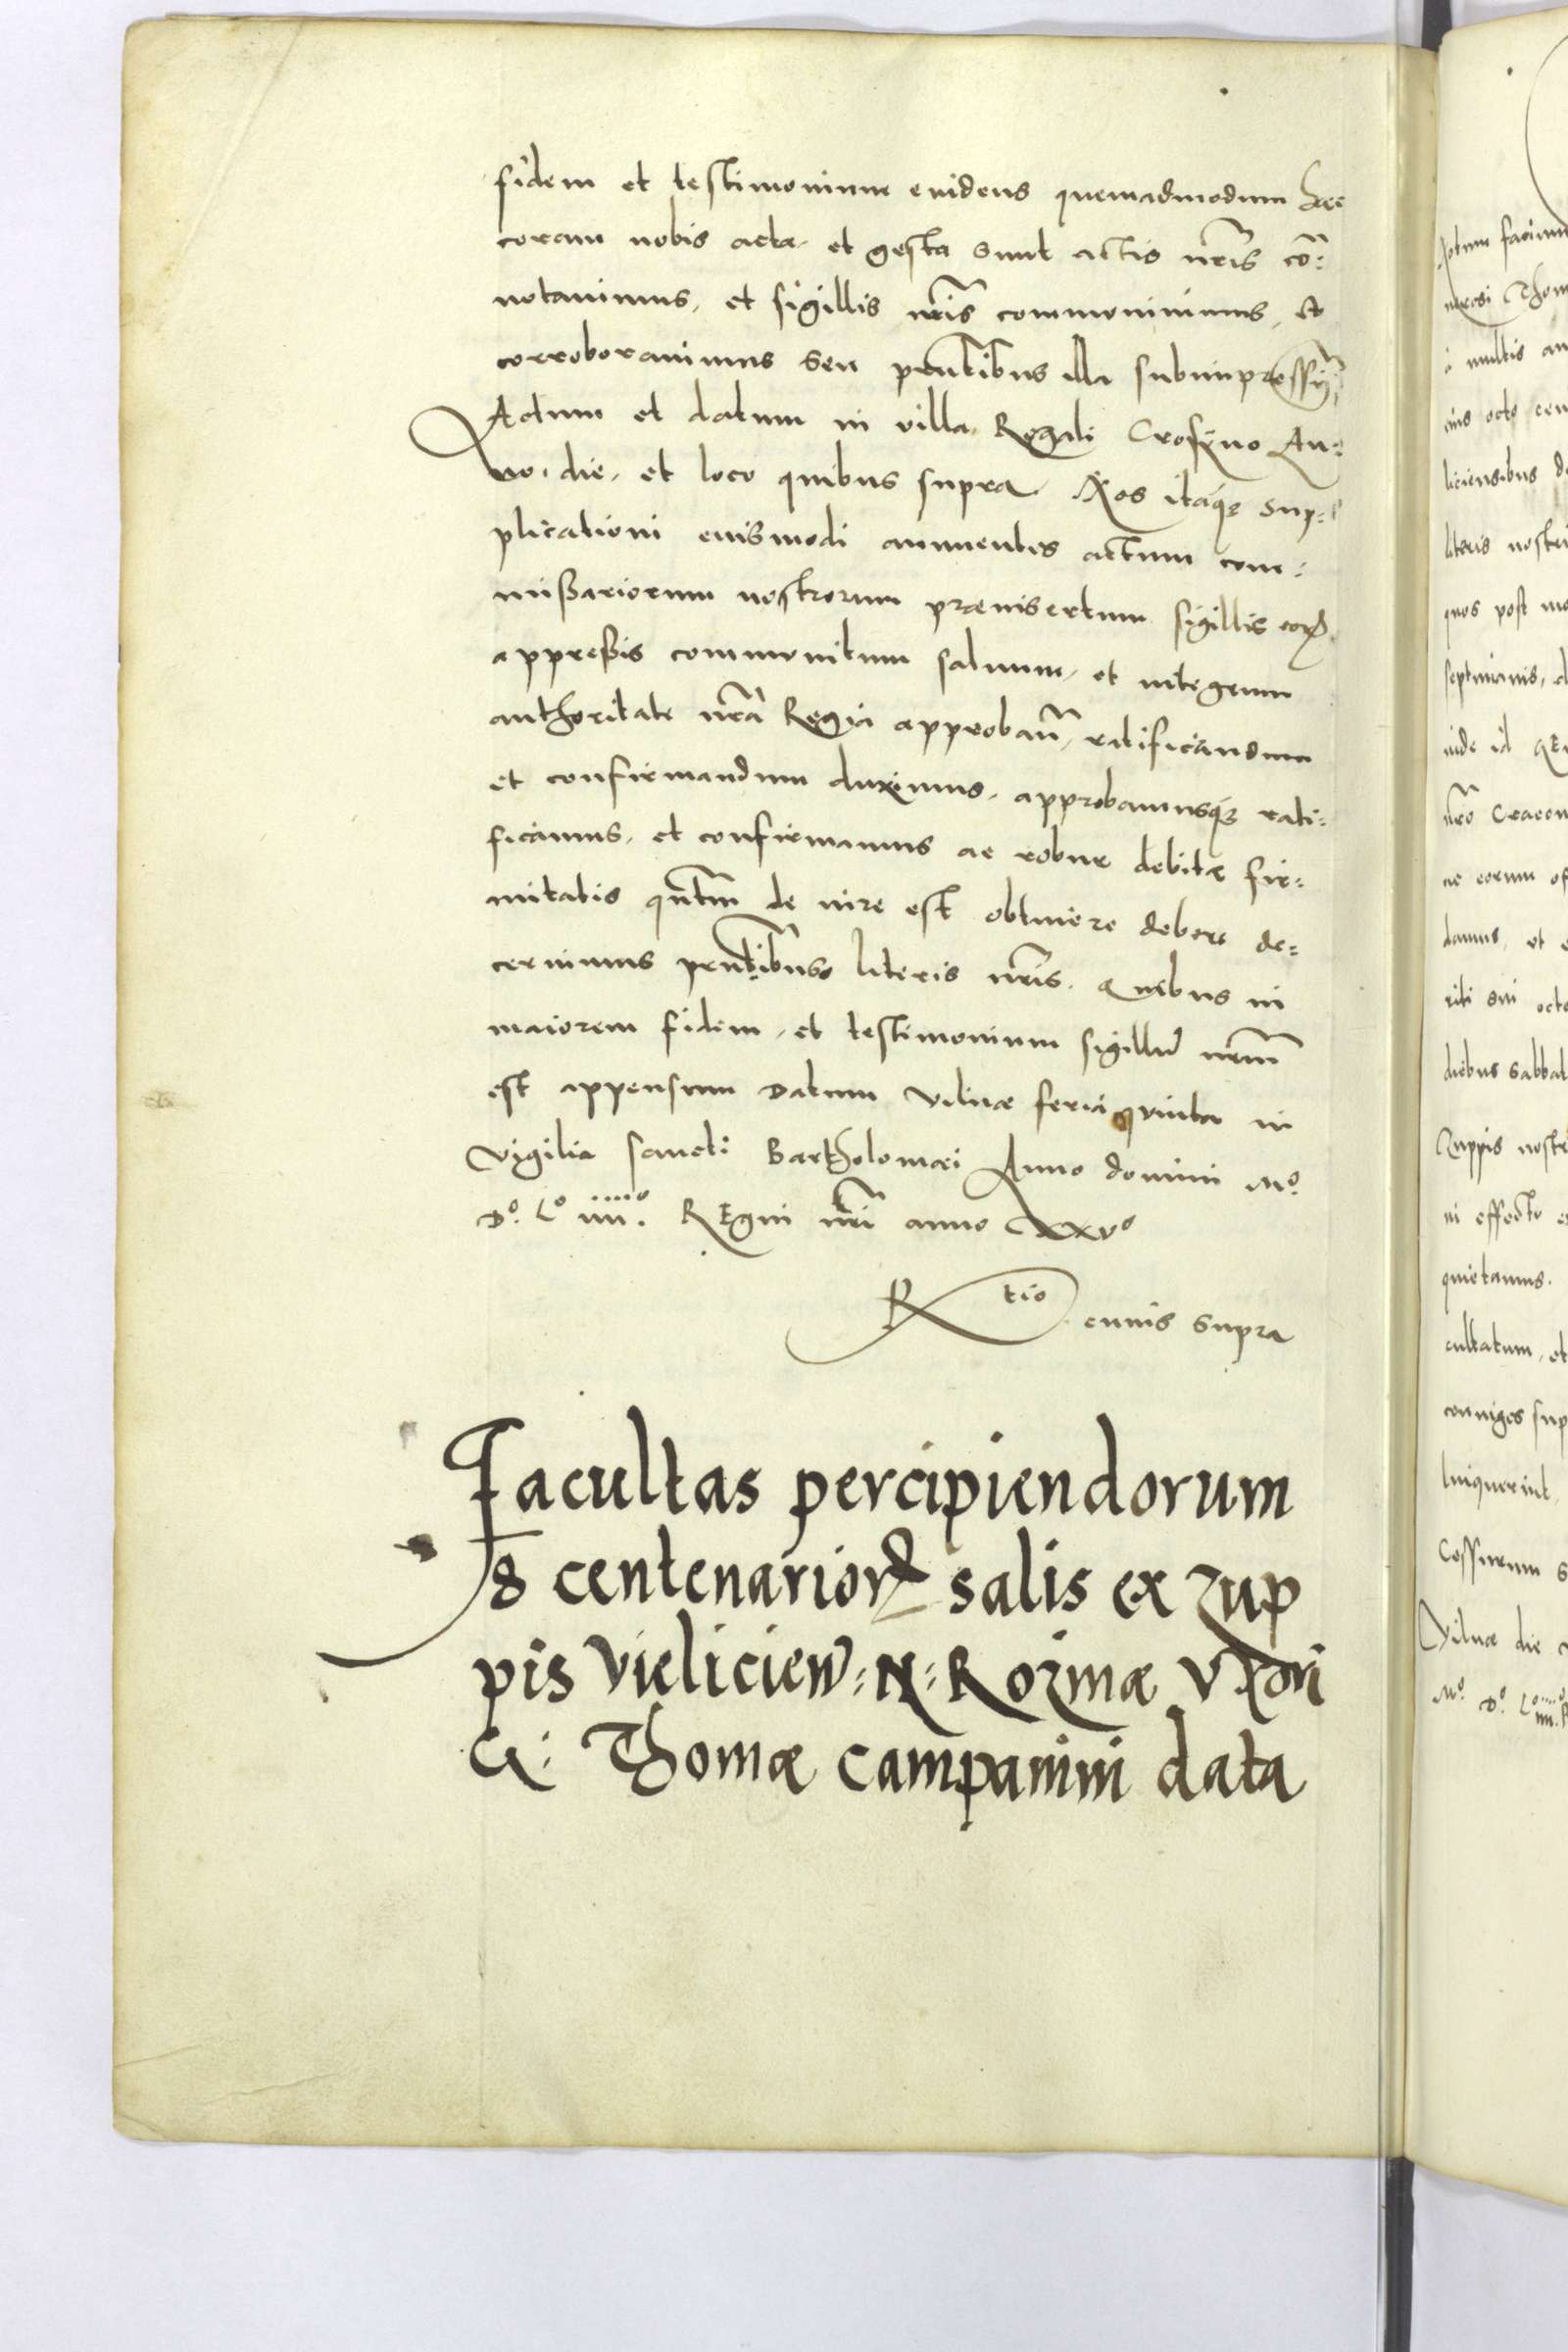 fidem et testimonium euidens quemadmodum haec
coram nobis acta et gesta sunt actis nr̃is cõ=
notauimus, et sigillis nr̃is communiuimus, et
corroborauimus seu pñtibus illa subimpressi͂
Actum et datum in villa Regali Crosyno An=
no, die, et loco quibus supra. Nos itaq̃ Sup=
plicationi eiusmodi annuentes actum com=
missariorum nostrorum praeinsertum sigillis eorꝝ
appressis communitum saluum, et integrum
authoritate nr̃a Regia approbañ, ratificandum
et confirmandum duximus, approbamusq̃ rati=
ficamus, et confirmamus ac robur debitae fir=
mitatis qñtm de iure est obtinere debere de=
cernimus pñtibus literis nr̃is. Quibus in
maiorem fidem, et testimonium sigillũ nr̃m
est appensum Datum Vilnae feria quinta in
Vigilia Sancti Bartholomaei Anno domini Mº
Dº Lº iiiiº Regni nr̃i anno XXVº
Rtio cuius supra
Facultas percipiendorum
8 centenariorꝝ salis ex zup
pis Vielicien̄: N: Rozmae vxori
G: Thomae campanini data
Notum facimus
i multis an
eius octo cen
liciensibus d
literis nostri
quos post mo
septimanis, d
inde id
nr̃o Cracou
ac eorum of
damus, et
riti sui octo
diebus sabbat
Zuppis nostr
in effectu
quietamus.
cultatum, et
coniuges sup
linquerint,
Cossurum s
Vilnae die
Mº Dº Lº iiiiº R